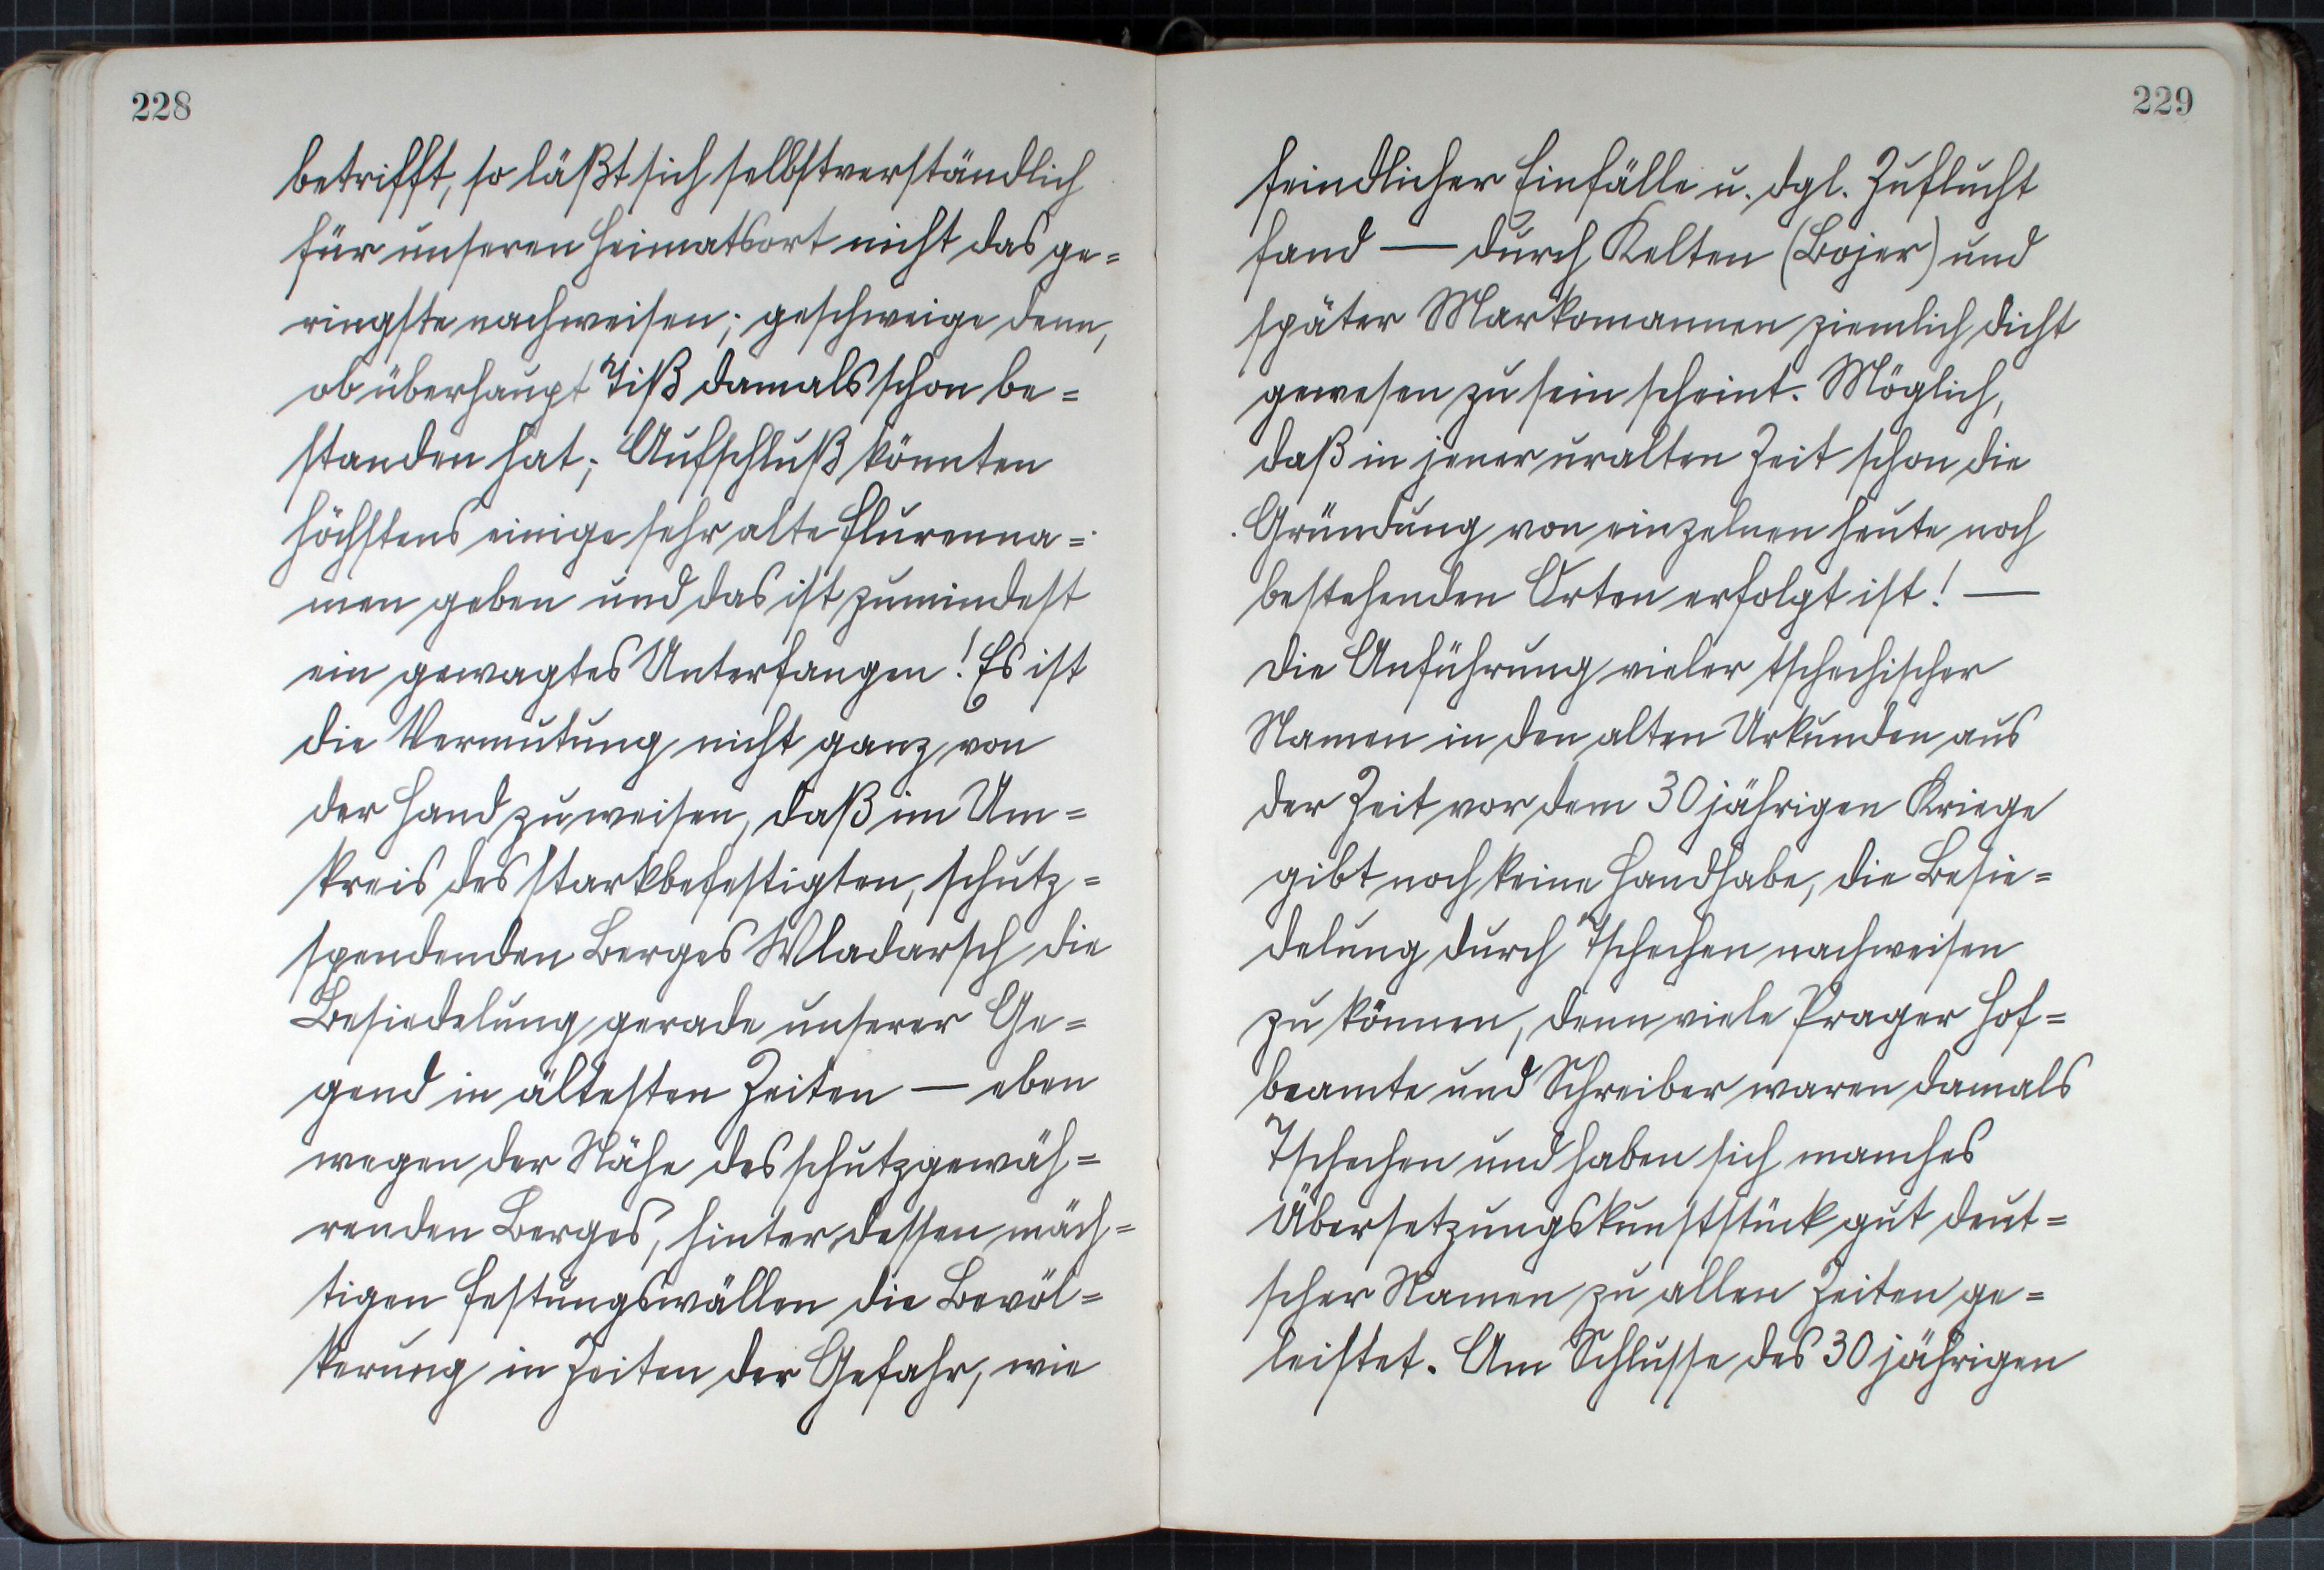 228
betrifft, so läßt sich selbstverständlich
für unseren Heimatsort nicht das ge=
ringste nachweisen; geschweige denn,
ob überhaupt Tiß damals schon be=
standen hat; Aufschluß könnten
höchstens einige sehr alte Flurenna=
men geben und das ist zumindest
ein gewagtes Unterfangen! Es ist
die Vermutung nicht ganz von
der Hand zu weisen, daß im Um=
kreis des starkbefestigten, schutz=
spendenden Berges Wladarsch die
Besiedelung gerade unserer Ge=
gend in ältesten Zeiten — eben
wegen der Nähe des schutzgewäh=
renden Berges, hinter dessen mäch=
tigen Festungswällen die Bevöl=
kerung in Zeiten der Gefahr, wie
229
feindlicher Einfälle u. dgl. Zuflucht
fand — durch Kelten (Bojer) und
später Markomannen ziemlich dicht
gewesen zu sein scheint. Möglich,
daß in jener uralten Zeit schon die
Gründung von einzelnen heute noch
bestehenden Orten erfolgt ist! —
Die Anführung vieler tschechischer
Namen in den alten Urkunden aus
der Zeit vor dem 30jährigen Kriege
gibt noch keine Handhabe, die Besie=
delung durch Tschechen nachweisen
zu können, denn viele Prager Hof=
beamte und Schreiber waren damals
Tschechen und haben sich manches
Übersetzungskunststück gut deut=
scher Namen zu allen Zeiten ge=
leistet. Am Schlusse des 30jährigen